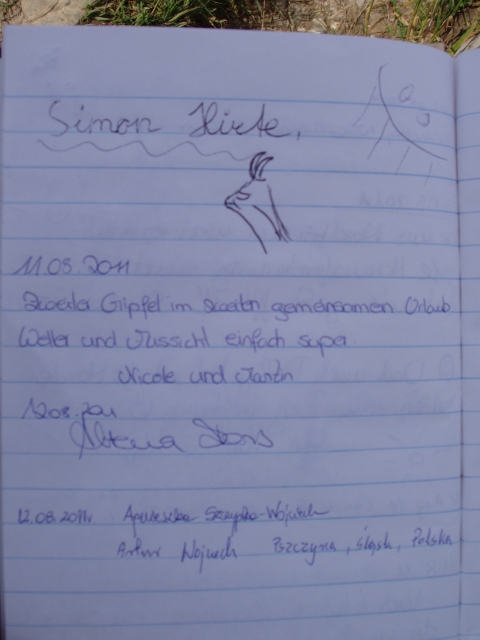 Simon Hirte,
11.08.2011
Zweiter Gipfel im zweiten gemeinsamen Urlaub
Wetter und Aussicht einfach super
Nicole und
12.08.2011
12.08.2011r. Agnieszka Szczypka-Wojciech
Artur Wojciech Pszczyna, Śląsk, Polska